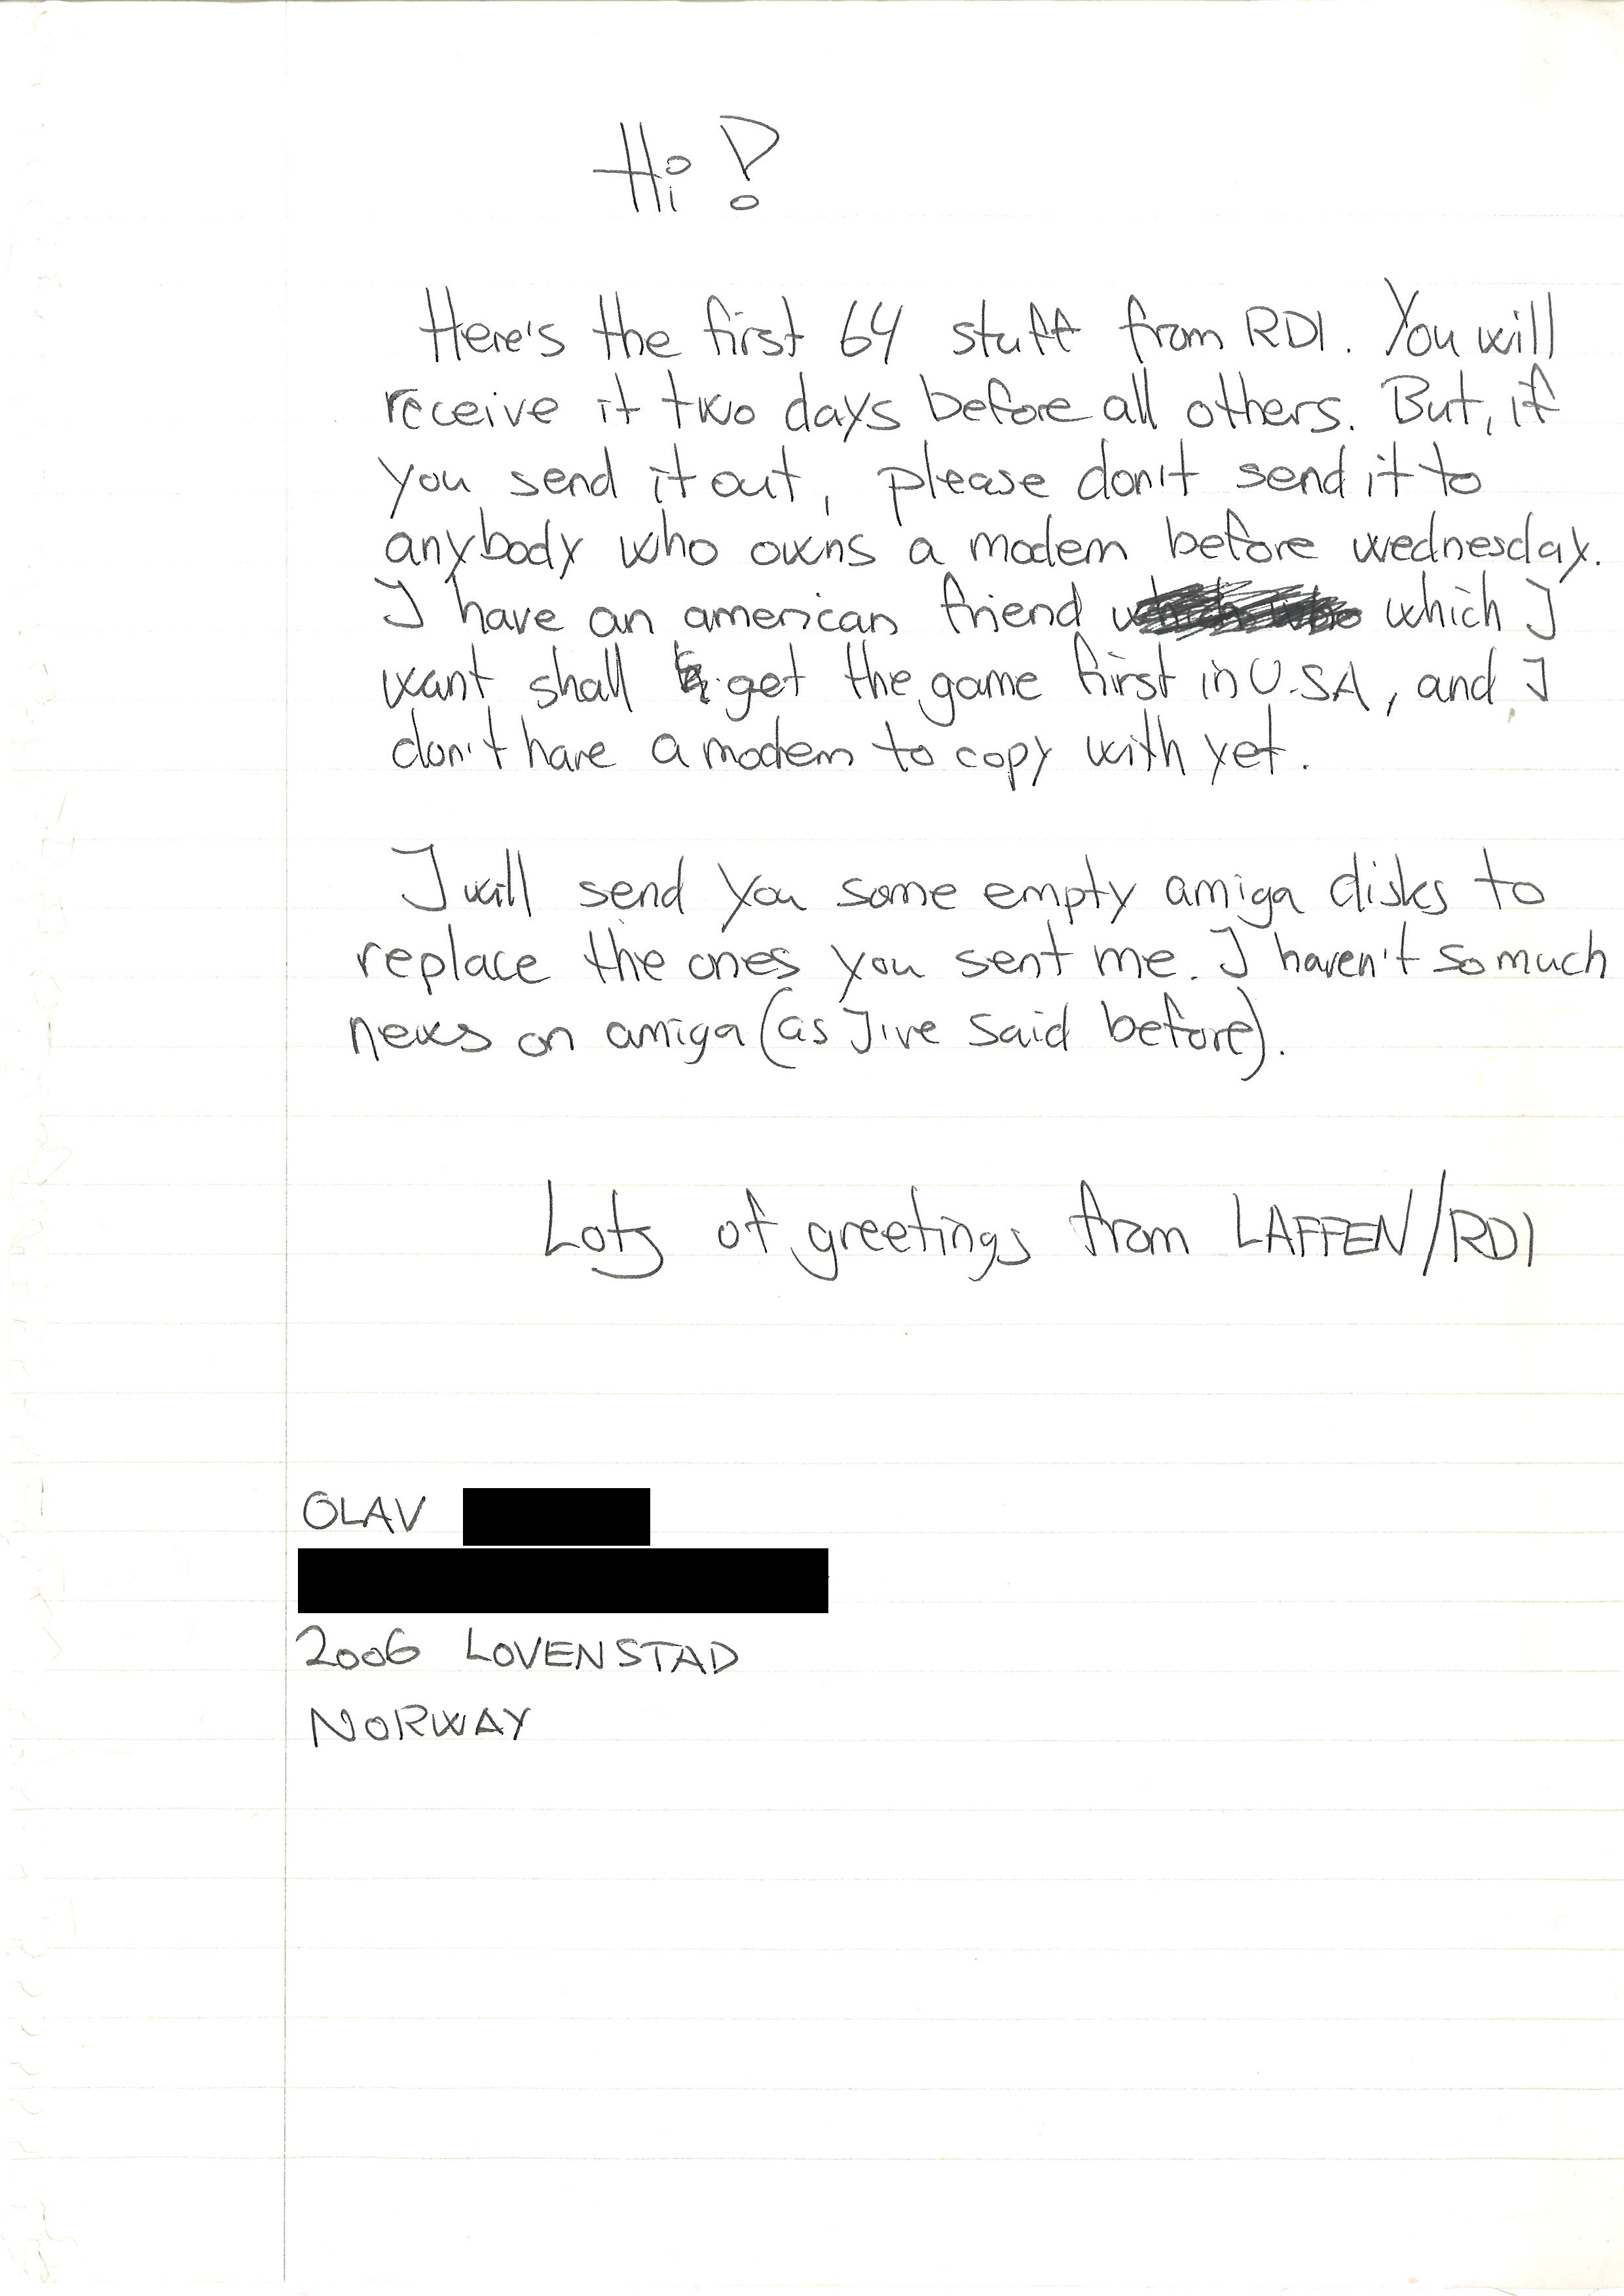 Hi!
Here's the first 64 stuff from RDI. You will
receive it two days before all others. But, if
you send it out, please don't send it to
anybody who owns a modem before wednesday.
I have an american friend which I
want shall get the game first in U.S.A, and I
don't have a modem to copy with yet.
I will send you some empty amiga disks to
replace the ones you sent me. I haven't so much
news on amiga (as I've said before).
Lots of greetings from LAFFEN/RDI
OLAV
2006 LOVENSTAD
NORWAY